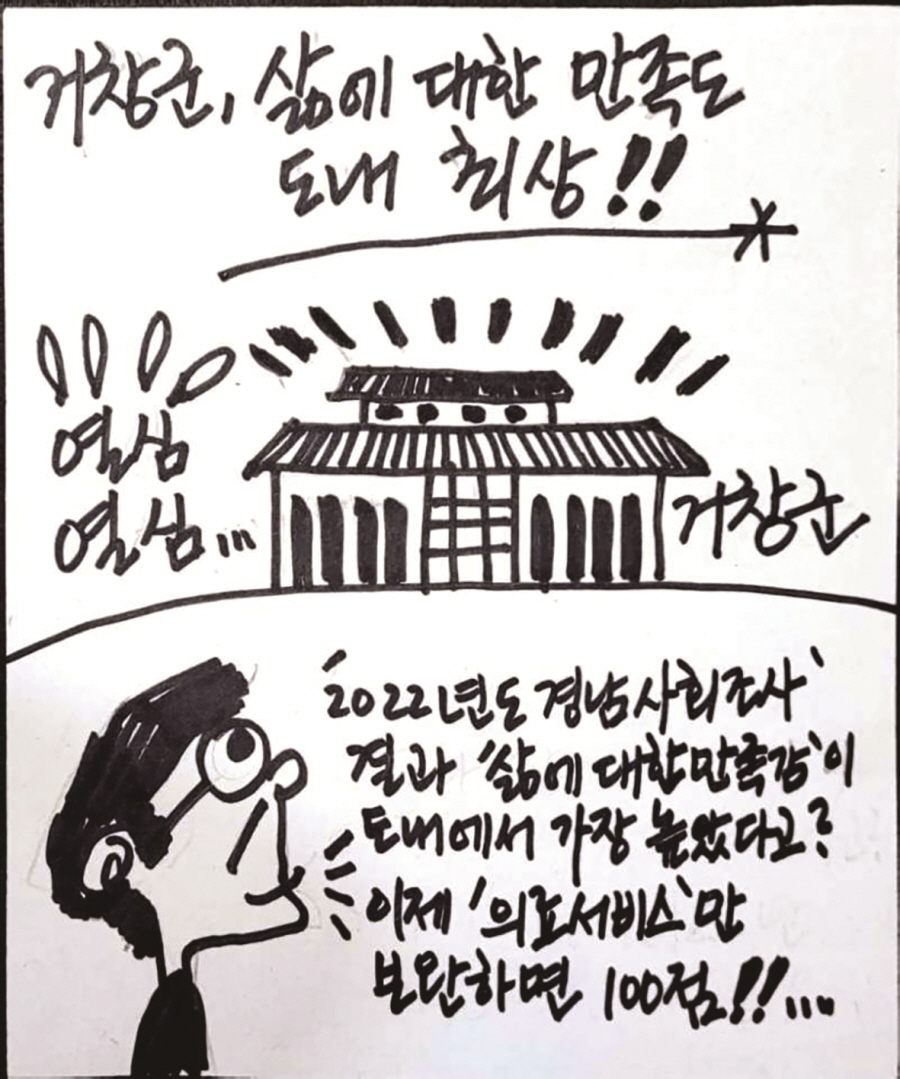 거창군, 삶에 대한 만족도
도내 최상!!
열심
열심...
거창군
'2022년도 경남사회조사'
결과 '삶에 대한만족감'이
도내에서 가장 높았다고?
이제 '의료서비스'만
보완하면 100점!!...